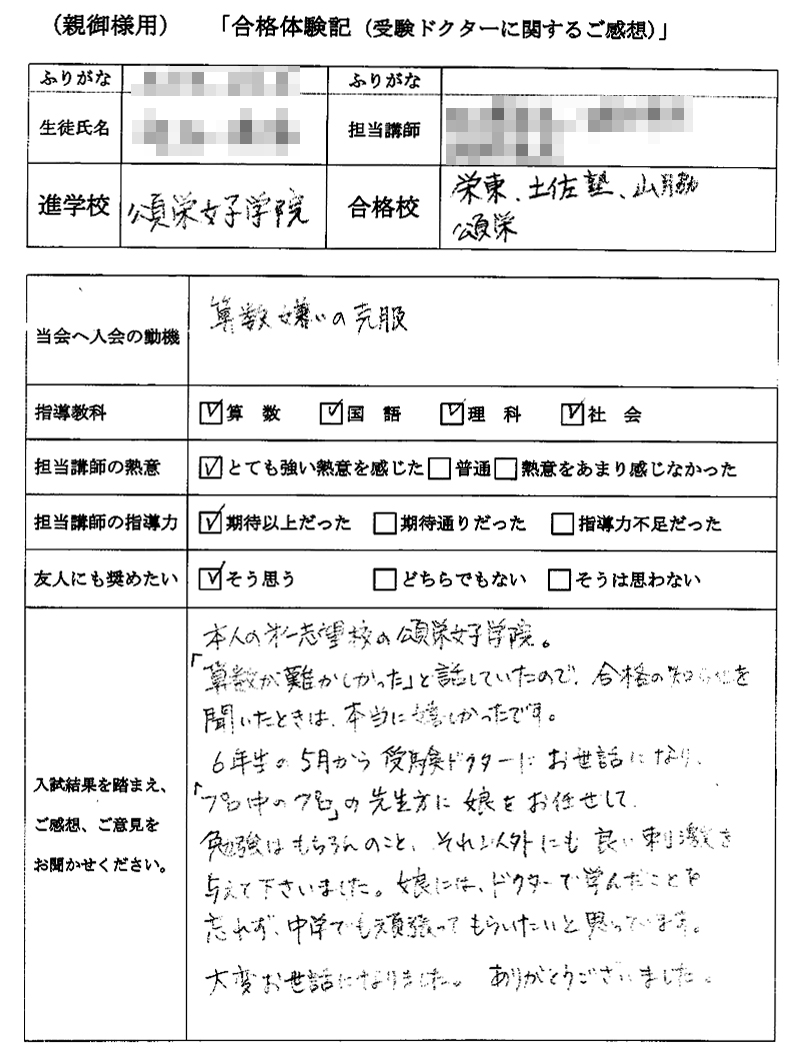 （親御様用）　「合格体験記（受験ドクターに関するご感想）」
ふりがな　ふりがな
生徒氏名　担当講師
進学校　頌栄女子学院　合格校　栄東、土佐塾、山脇
頌栄
当会へ入会の動機　算数嫌いの克服
指導教科　☑算　数　☑国　語　☑理　科　☑社　会
担当講師の熱意　☑とても強い熱意を感じた□普通□熱意をあまり感じなかった
担当講師の指導力　☑期待以上だった　□期待通りだった　□指導力不足だった
友人にも奨めたい　☑そう思う　□どちらでもない　□そうは思わない
入試結果を踏まえ、
ご感想、ご意見を
お聞かせください。
本人の第一志望校の頌栄女子学院。
「算数が難かしかった」と話していたので、合格の知らせを
聞いたときは、本当に嬉しかったです。
6年生の5月から受験ドクターにお世話になり、
「プロ中のプロ」の先生方に娘をお任せして、
勉強はもちろんのこと、それ以外にも良い刺激を
与えて下さいました。娘には、ドクターで学んだことを
忘れず、中学でも頑張ってもらいたいと思っています。
大変お世話になりました。ありがとうございました。